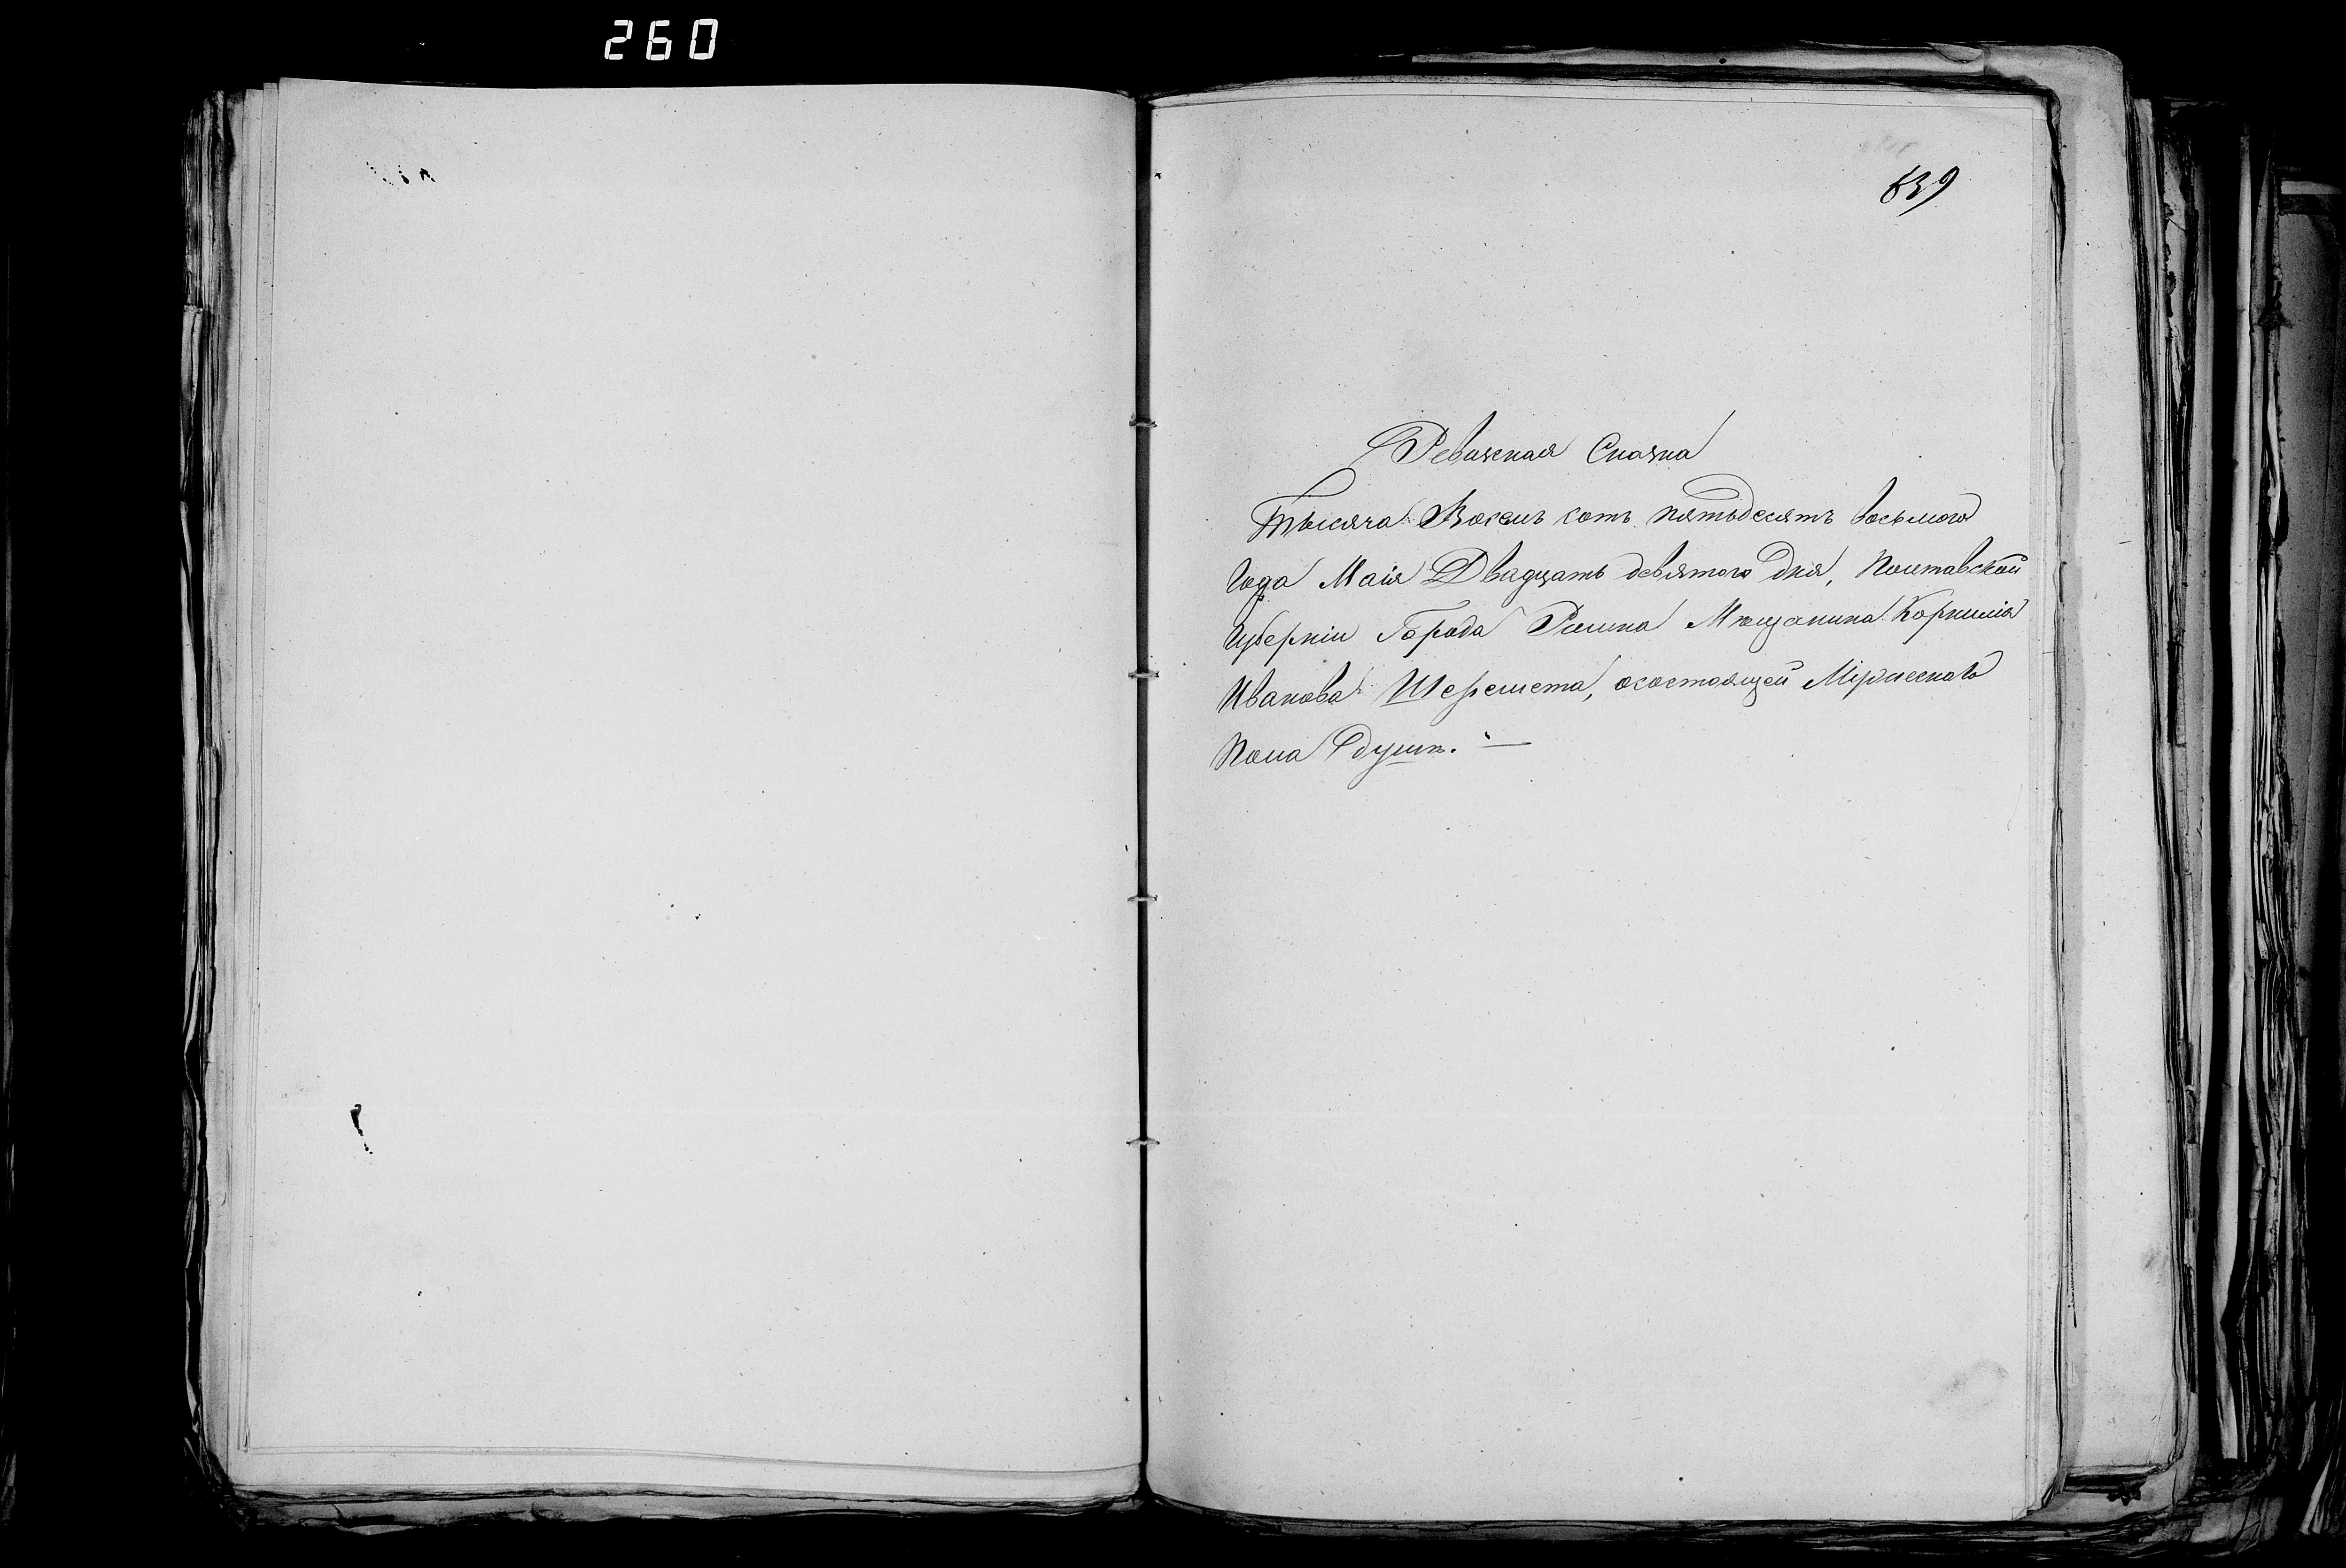 260
639
Ревизская Сказка
Тысяча Восемь сотъ пятьдесятъ восьмого
Года Маія Двадцать девятого дня, Полтавской
Губерніи Города Ромна Мѣщанина Корнилія
Иванова Шеремета, осостоящей Мужеска
Пола душѣ. —